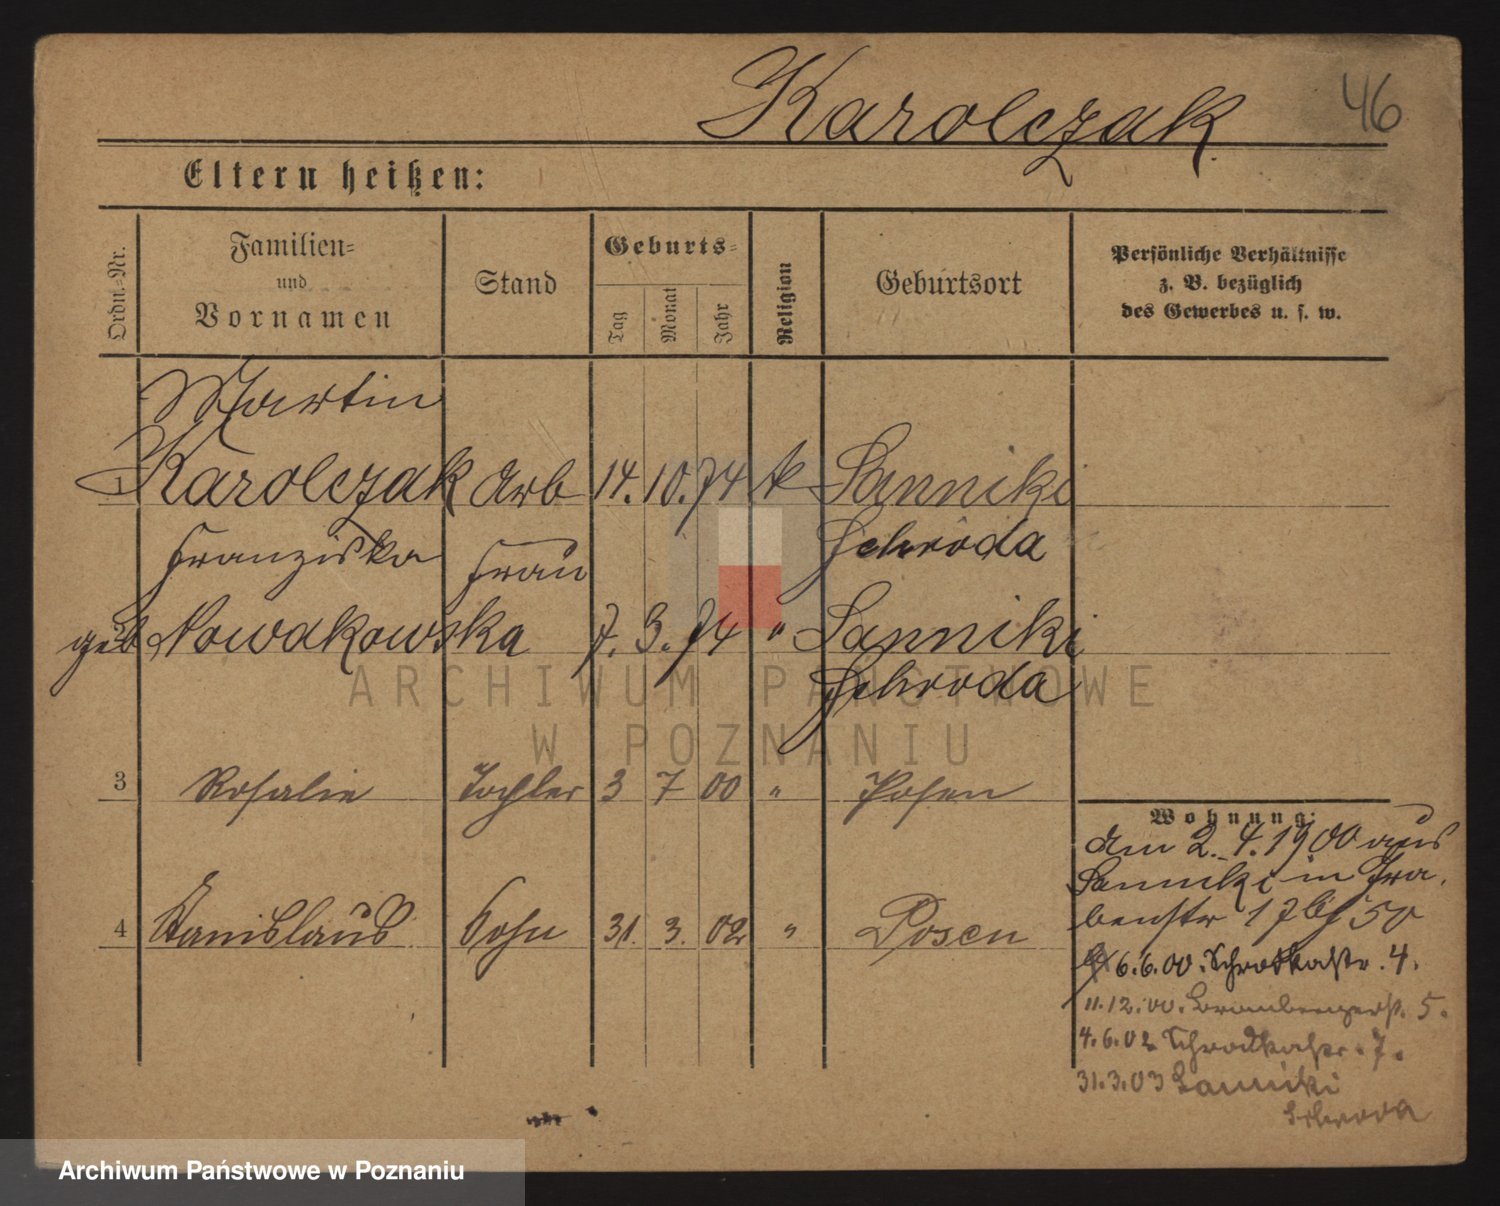 46
Karolczak
Eltern heißen:
Ordn.-Nr.
Familien-
und
Vornamen
Stand
Geburts-
Tag
Monat
Jahr
Religion
Geburtsort
Persönliche Verhältnisse
z. B. bezüglich
des Gewerbes u. s. w.
Martin
1 Karolczak Arb 14. 10. 74 k Sanniki
Schroda
Franziska Frau
geb Nowakowska 7. 3. 74 " Sanniki
Schroda
3 Rosalie Tochter 3 7 00 " Posen
4 Stanislaus Sohn 31. 3. 02 " Posen
Wohnung:
Am 2. 4. 1900 aus
Sanniki in Gra-
benstr 17 bei
6.6.00. Schrodkastr. 4.
11.12.00. Brombergerstr. 5.
4.6.02 Schrodkastr. 7.
31.3.03 Sanniki
Schroda
ARCHIWUM PAŃSTWOWE
W POZNANIU
Archiwum Państwowe w Poznaniu